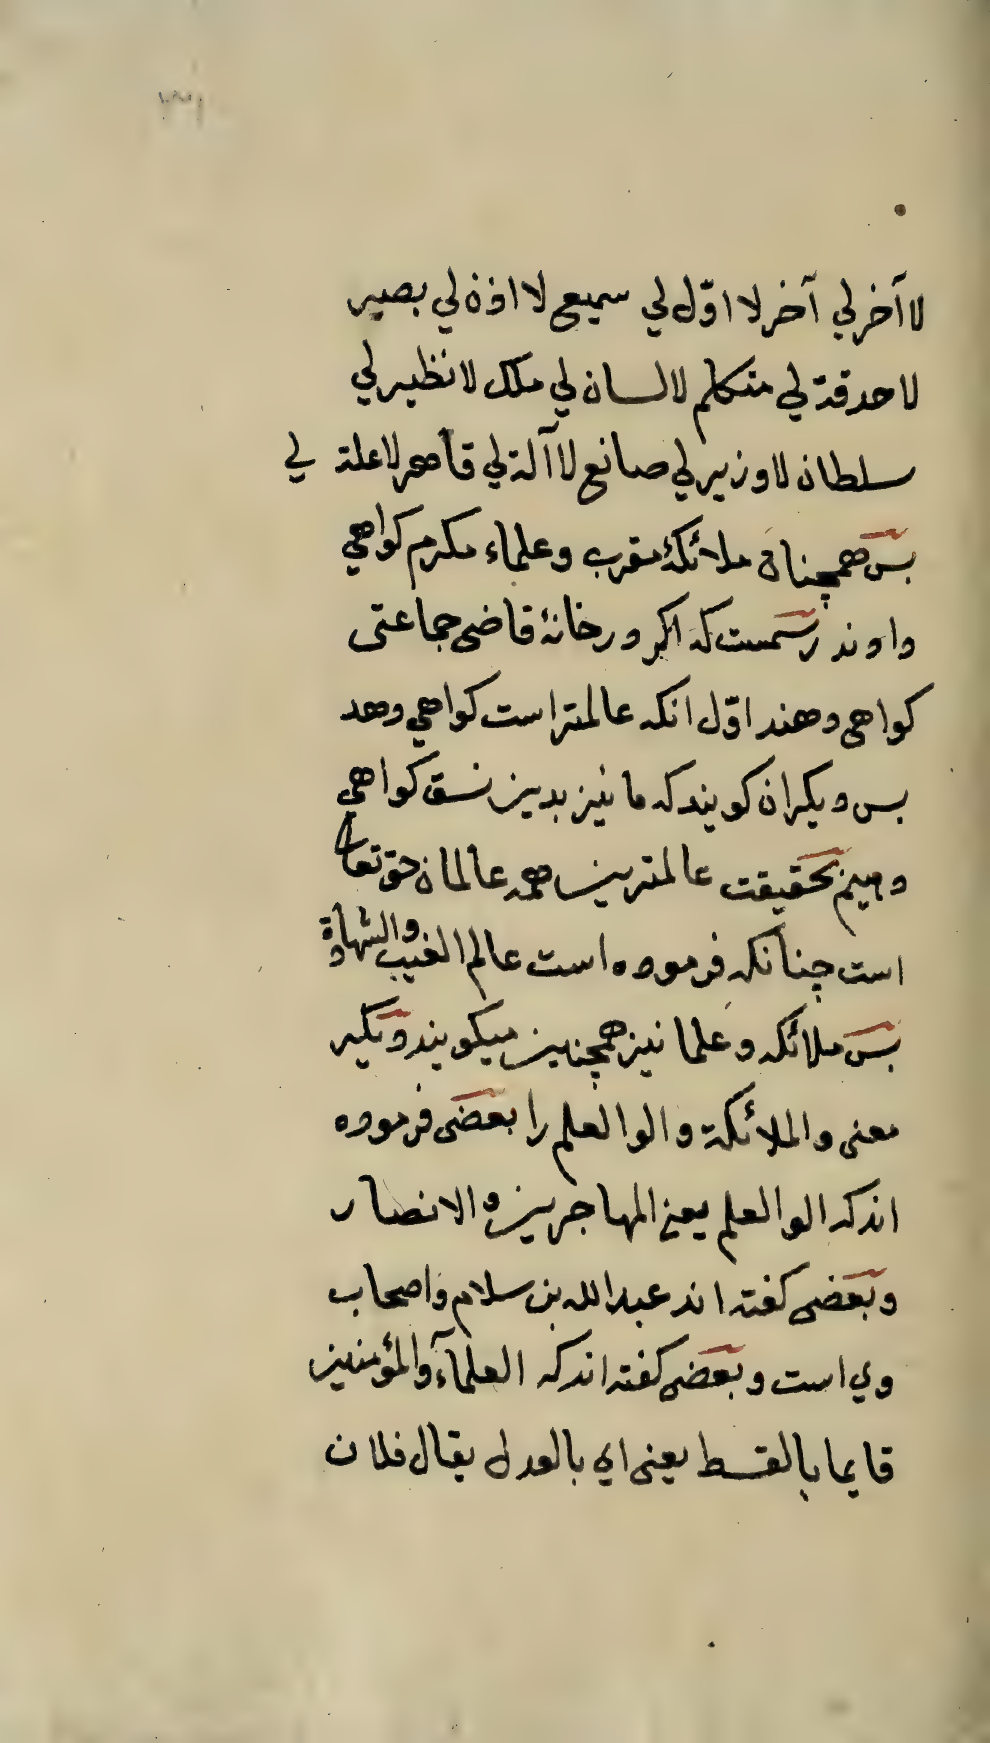 لا آخر لي آخر لا اوّل لي سميع لا اذن لي بصير
لا حدقة لي متكلم لا لسان لي ملك لا نظير لي
سلطان لا وزير لي صانع لا آلة لي قاهر لا علة لي
بس همچنان ملائكۀ مقرب وعلماء مكرم كواهي
داوند رسمست كه اكر در خانۀ قاضى جماعتى
كواهى دهند اوّل انكه عالمتر است كواهي دهد
بس ديكران كويند كه ما نيز بدين نسق كواهي
دهيم بحقيقت عالمترين همه عالمان حق تعالى
است چنانكه فرموده است عالم الغيب والشهادة
بس ملائكه و علما نيز همچنين ميكويند و ديكر
معنى والملائكة والوا لعلم را بعضى فرموده
اند كه الوا لعلم يعنى المهاجرين و الانصار
وبعضى كفته اند عبدالله بن سلام واصحاب
وي است و بعضى كفته اند كه العلمآء والمؤمنين
قايما بالقسط يعنى اي بالعدل يقال فلان